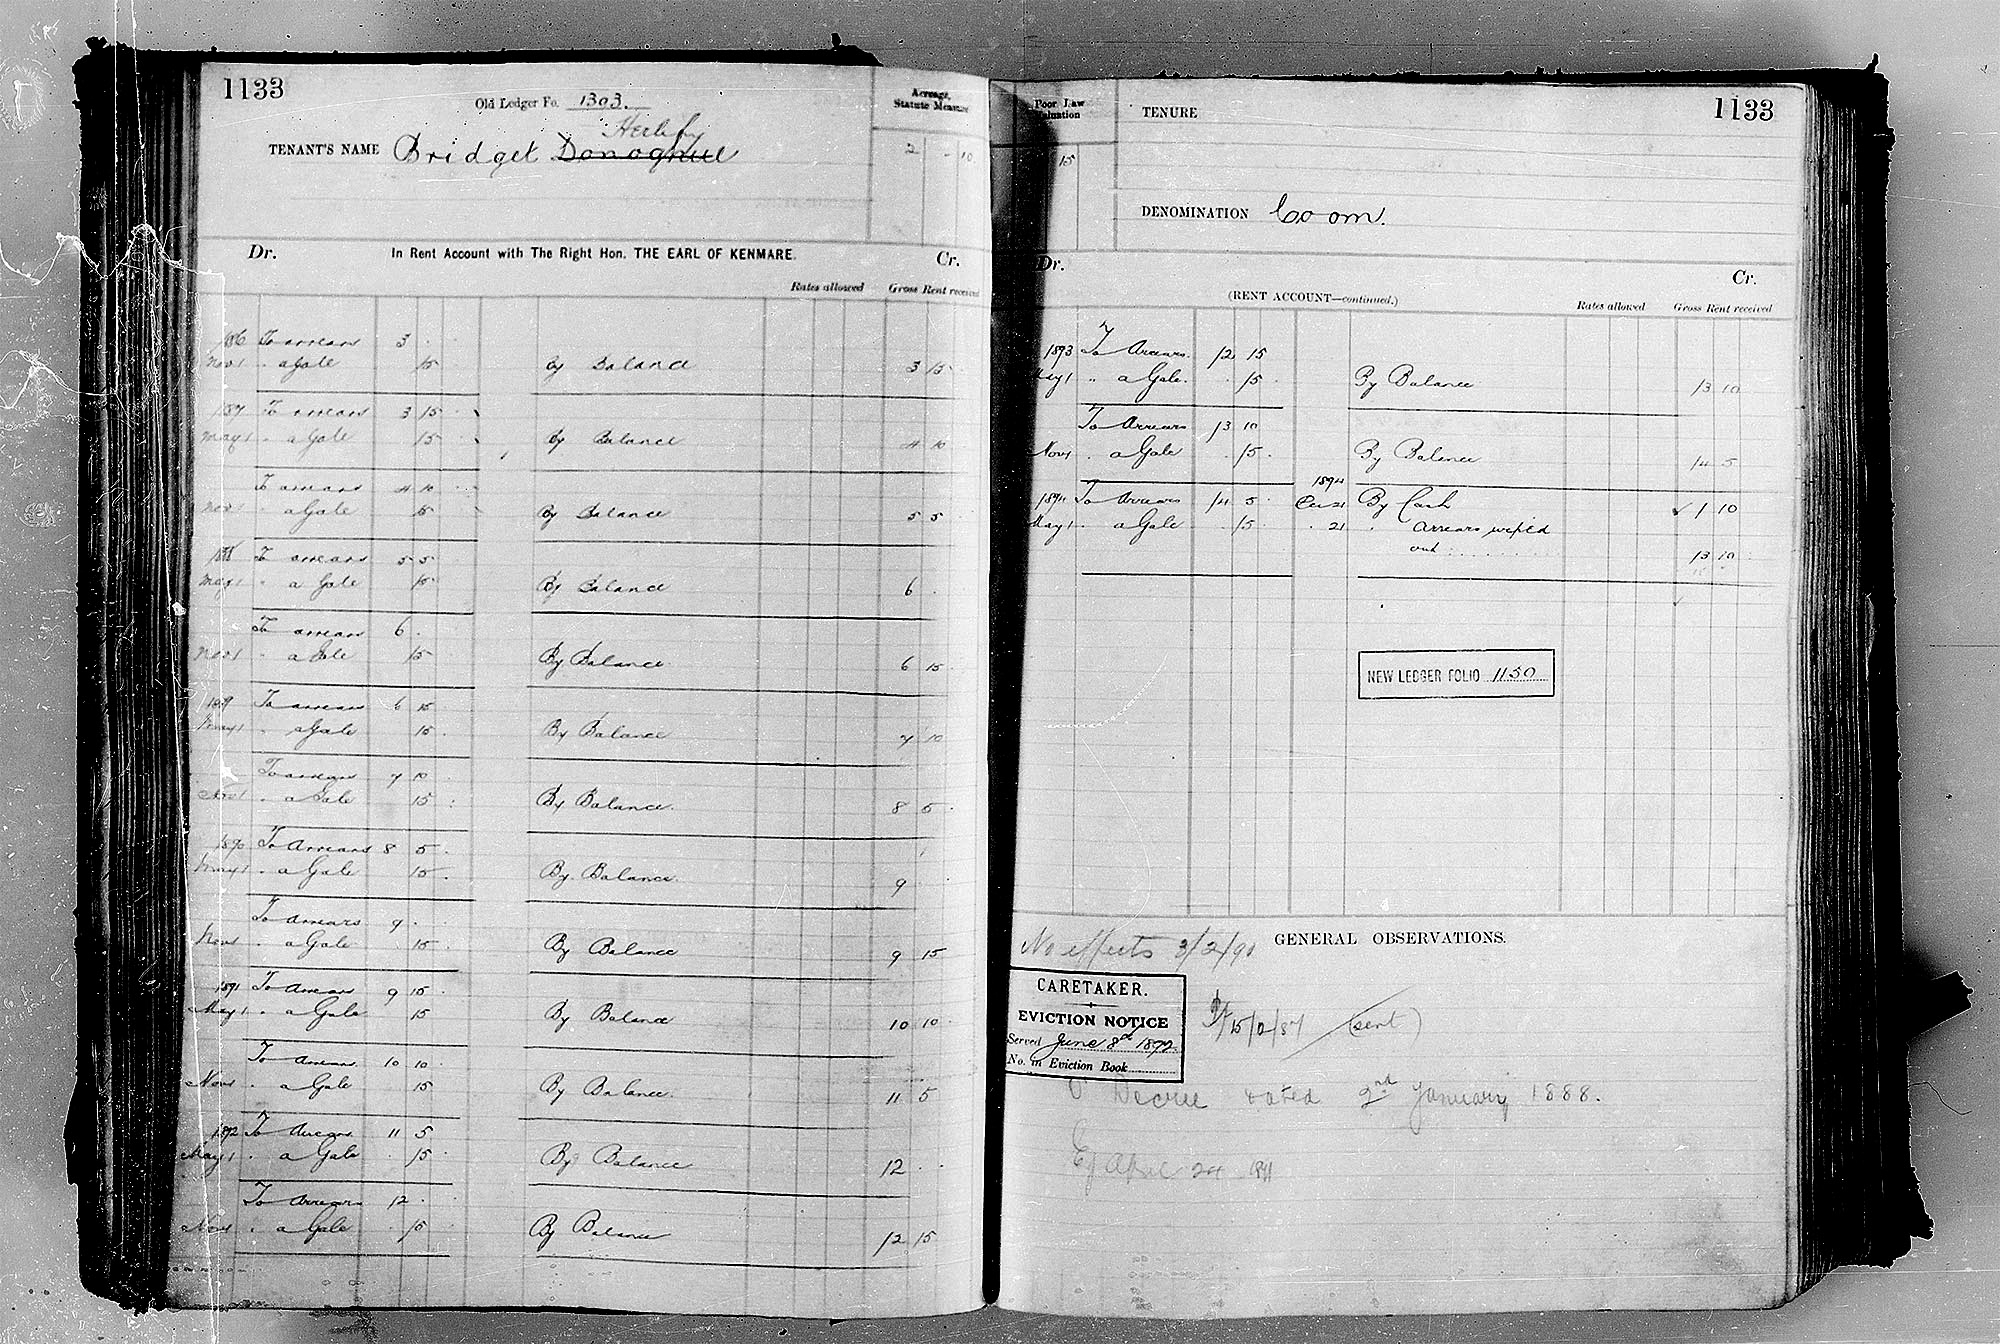 1133
Old Ledger Fo. 1303.
Acreage,
Statute Measure
Herlihy
TENANT'S NAME Bridget Donoghue
2 - 10
Dr. In Rent Account with The Right Hon. THE EARL OF KENMARE. Cr.
Rates allowed Gross Rent received
1886 To arrears 3 . .
Nov 1 " a Gale 15 By Balance 3 15
1887 To arrears 3 15
May 1 " a Gale 15 By Balance 4 10
To arrears 4 10
Nov 1 " a Gale 15 By Balance 5 5
1888 To arrears 5 5
May 1 " a Gale 15 By Balance 6 .
To arrears 6 .
Nov 1 " a Gale 15 By Balance 6 15
1889 To arrears 6 15
May 1 " a Gale 15 By Balance 7 10
To arrears 7 10
Nov 1 " a Gale 15 By Balance 8 5
1890 To Arrears 8 5
May 1 " a Gale 15 By Balance 9
To Arrears 9 .
Nov 1 " a Gale 15 By Balance 9 15
1891 To Arrears 9 15
May 1 " a Gale 15 By Balance 10 10
To Arrears 10 10
Nov 1 " a Gale 15 By Balance 11 5
1892 To Arrears 11 5
May 1 " a Gale 15 By Balance 12 . .
To Arrears 12 .
Nov 1 " a Gale 15 By Balance 12 15
Poor Law
Valuation
TENURE
1133
15
DENOMINATION Coom.
Dr. Cr.
(RENT ACCOUNT—continued.)
Rates allowed Gross Rent received
1893 To Arrears 12 15
May 1 " a Gale . 15 By Balance 13 10
To Arrears 13 10
Nov 1 " a Gale . 15 By Balance 14 5
1894
1894 To Arrears 14 5 21 By Cash ✓ 1 10
May 1 " a Gale . 15 " 21 " Arrears wiped
out 13 10
NEW LEDGER FOLIO 1150
GENERAL OBSERVATIONS.
No effects 3/2/90
CARETAKER.
EVICTION NOTICE
Served June 8th 1892
No. in Eviction Book
15/12/87 (sent)
Decree dated 2nd January 1888.
Ej April 24